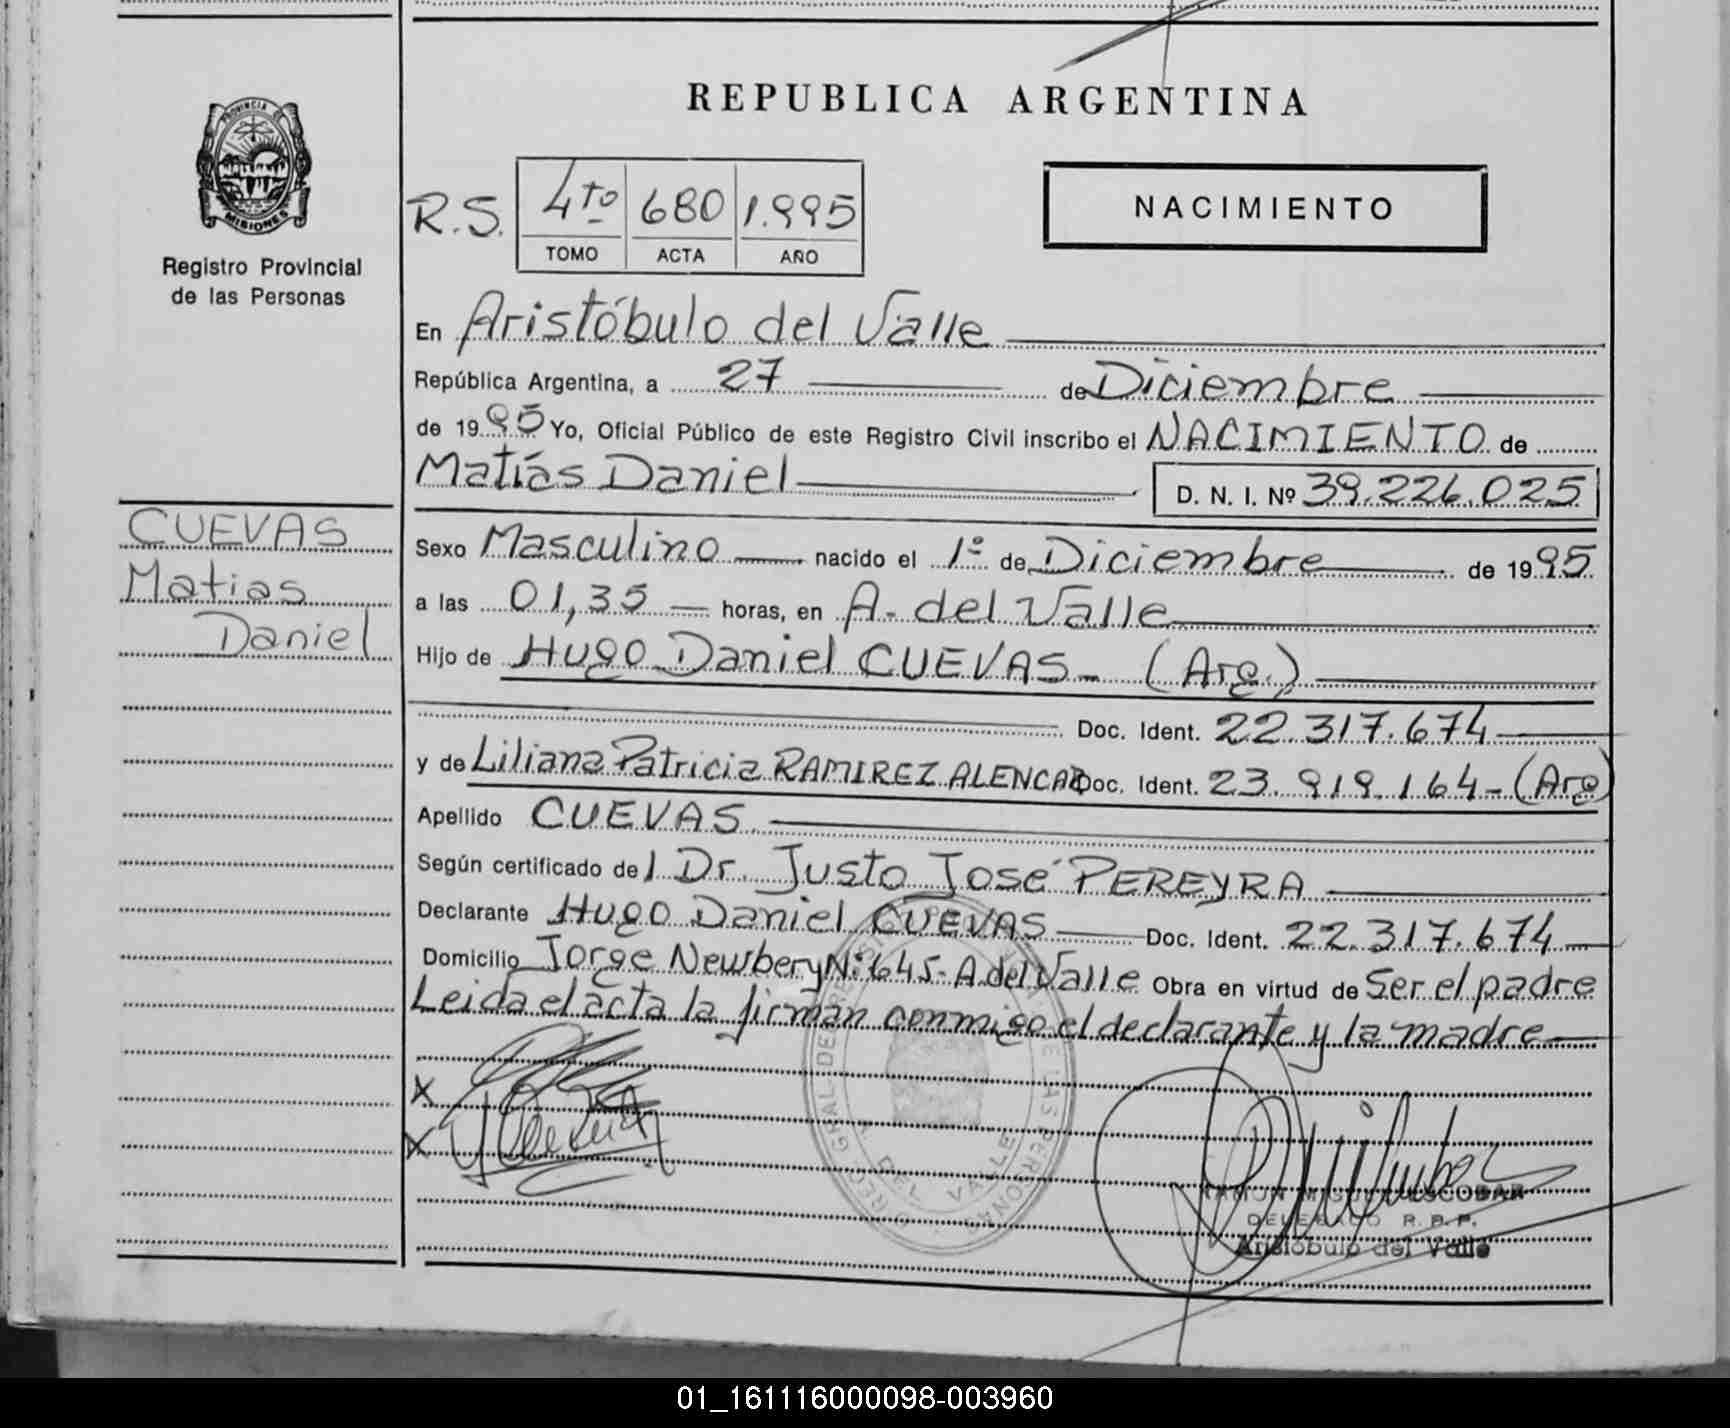 REPUBLICA ARGENTINA
PROVINCIA DE
MISIONES
Registro Provincial
de las Personas
R.S. 4to 680 1.995
TOMO ACTA AÑO
NACIMIENTO
En Aristóbulo del Valle
República Argentina, a 27 de Diciembre
de 1995 Yo, Oficial Público de este Registro Civil inscribo el NACIMIENTO de
Matías Daniel D. N. I. Nº 39.226.025
CUEVAS
Matias
Daniel
Sexo Masculino nacido el 1º de Diciembre de 1995
a las 01,35 horas, en A. del Valle
Hijo de Hugo Daniel CUEVAS - (Arg.)
Doc. Ident. 22.317.674
y de Liliana Patricia RAMIREZ ALENCAR Doc. Ident. 23.919.164 - (Arg)
Apellido CUEVAS
Según certificado del Dr. Justo José PEREYRA
Declarante Hugo Daniel CUEVAS Doc. Ident. 22.317.674
Domicilio Jorge Newbery Nº 645 - A. del Valle Obra en virtud de Ser el padre
Leida el acta la firman conmigo el declarante y la madre
X
X
DE LAS PERSONAS
RAMON MIGUEL ESCOBAR
DELEGADO R. P. P.
Aristóbulo del Valle
01_161116000098-003960